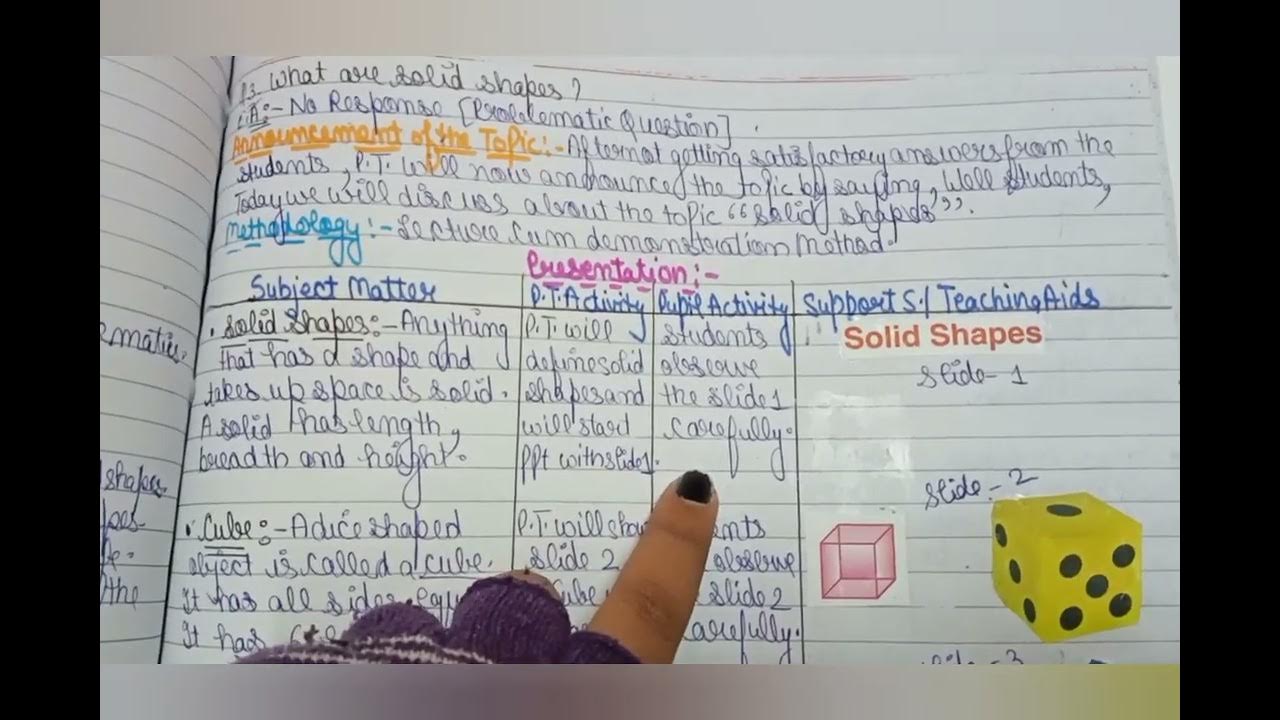 3. What are solid shapes?
A:- No Response [Problematic Question].
Announcement of the Topic:- After not getting satisfactory answers from the
students, P.T. will now announced the topic by saying, Well students,
Today we will discuss about the topic “solid shapes”.
Methodology:- Lecture cum demonstration Method.
Presentation:-
Subject Matter P.T. Activity Pupil Activity Support S./ Teaching Aids
• Solid Shapes:- Anything
that has a shape and
takes up space is solid.
A solid has length,
breadth and height.
P.T. will
define solid
shapes and
will start
PPt with slide 1.
students
observe
the slide 1
carefully.
Solid Shapes
slide - 1
• Cube:- A dice shaped
object is called a cube.
It has all sides
It has
P.T. will
slide 2
observe
slide 2
carefully.
slide - 2
3
ematics
shapes
the